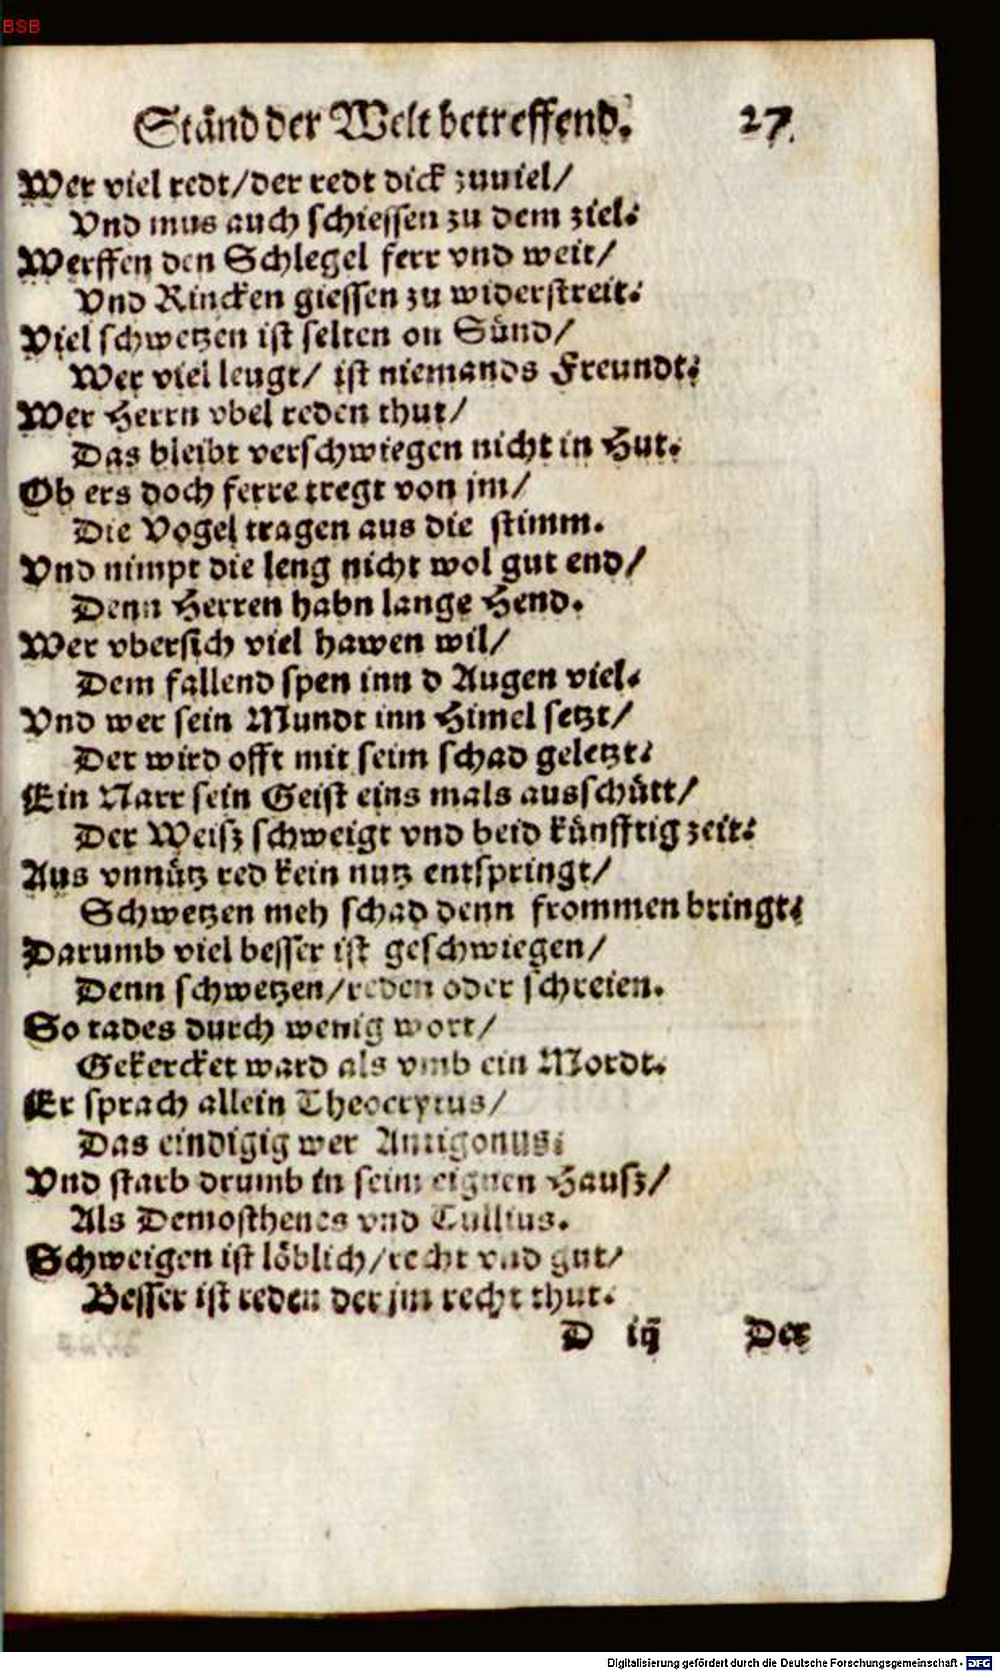 BSB
Ständ der Welt betreffend. 27.
Wer viel redt/der redt dick zuuiel/
Vnd mus auch schiessen zu dem ziel.
Werffen den Schlegel ferr vnd weit/
Vnd Rincken giessen zu widerstreit.
Viel schwetzen ist selten on Sünd/
Wer viel leugt/ ist niemands Freundt.
Wer Herrn vbel reden thut/
Das bleibt verschwiegen nicht in Hut.
Ob ers doch ferre tregt von jm/
Die Vogel tragen aus die stimm.
Vnd nimpt die leng nicht wol gut end/
Denn Herren habn lange Hend.
Wer vbersich viel hawen wil/
Dem fallend spen inn d Augen viel.
Vnd wer sein Mundt inn Himel setzt/
Der wird offt mit seim schad geletzt.
Ein Narr sein Geist eins mals ausschütt/
Der Weisz schweigt vnd beid künfftig zeit.
Aus vnnütz red kein nutz entspringt/
Schwetzen meh schad denn frommen bringt.
Darumb viel besser ist geschwiegen/
Denn schwetzen/reden oder schreien.
Sotades durch wenig wort/
Gekercket ward als vmb ein Mordt.
Er sprach allein Theocrytus/
Das eindigig wer Antigonus.
Vnd starb drumb in seim eignen Hausz/
Als Demosthenes vnd Tullius.
Schweigen ist löblich/recht vnd gut/
Besser ist reden der jm recht thut.
D iij Der
Digitalisierung gefördert durch die Deutsche Forschungsgemeinschaft - DFG